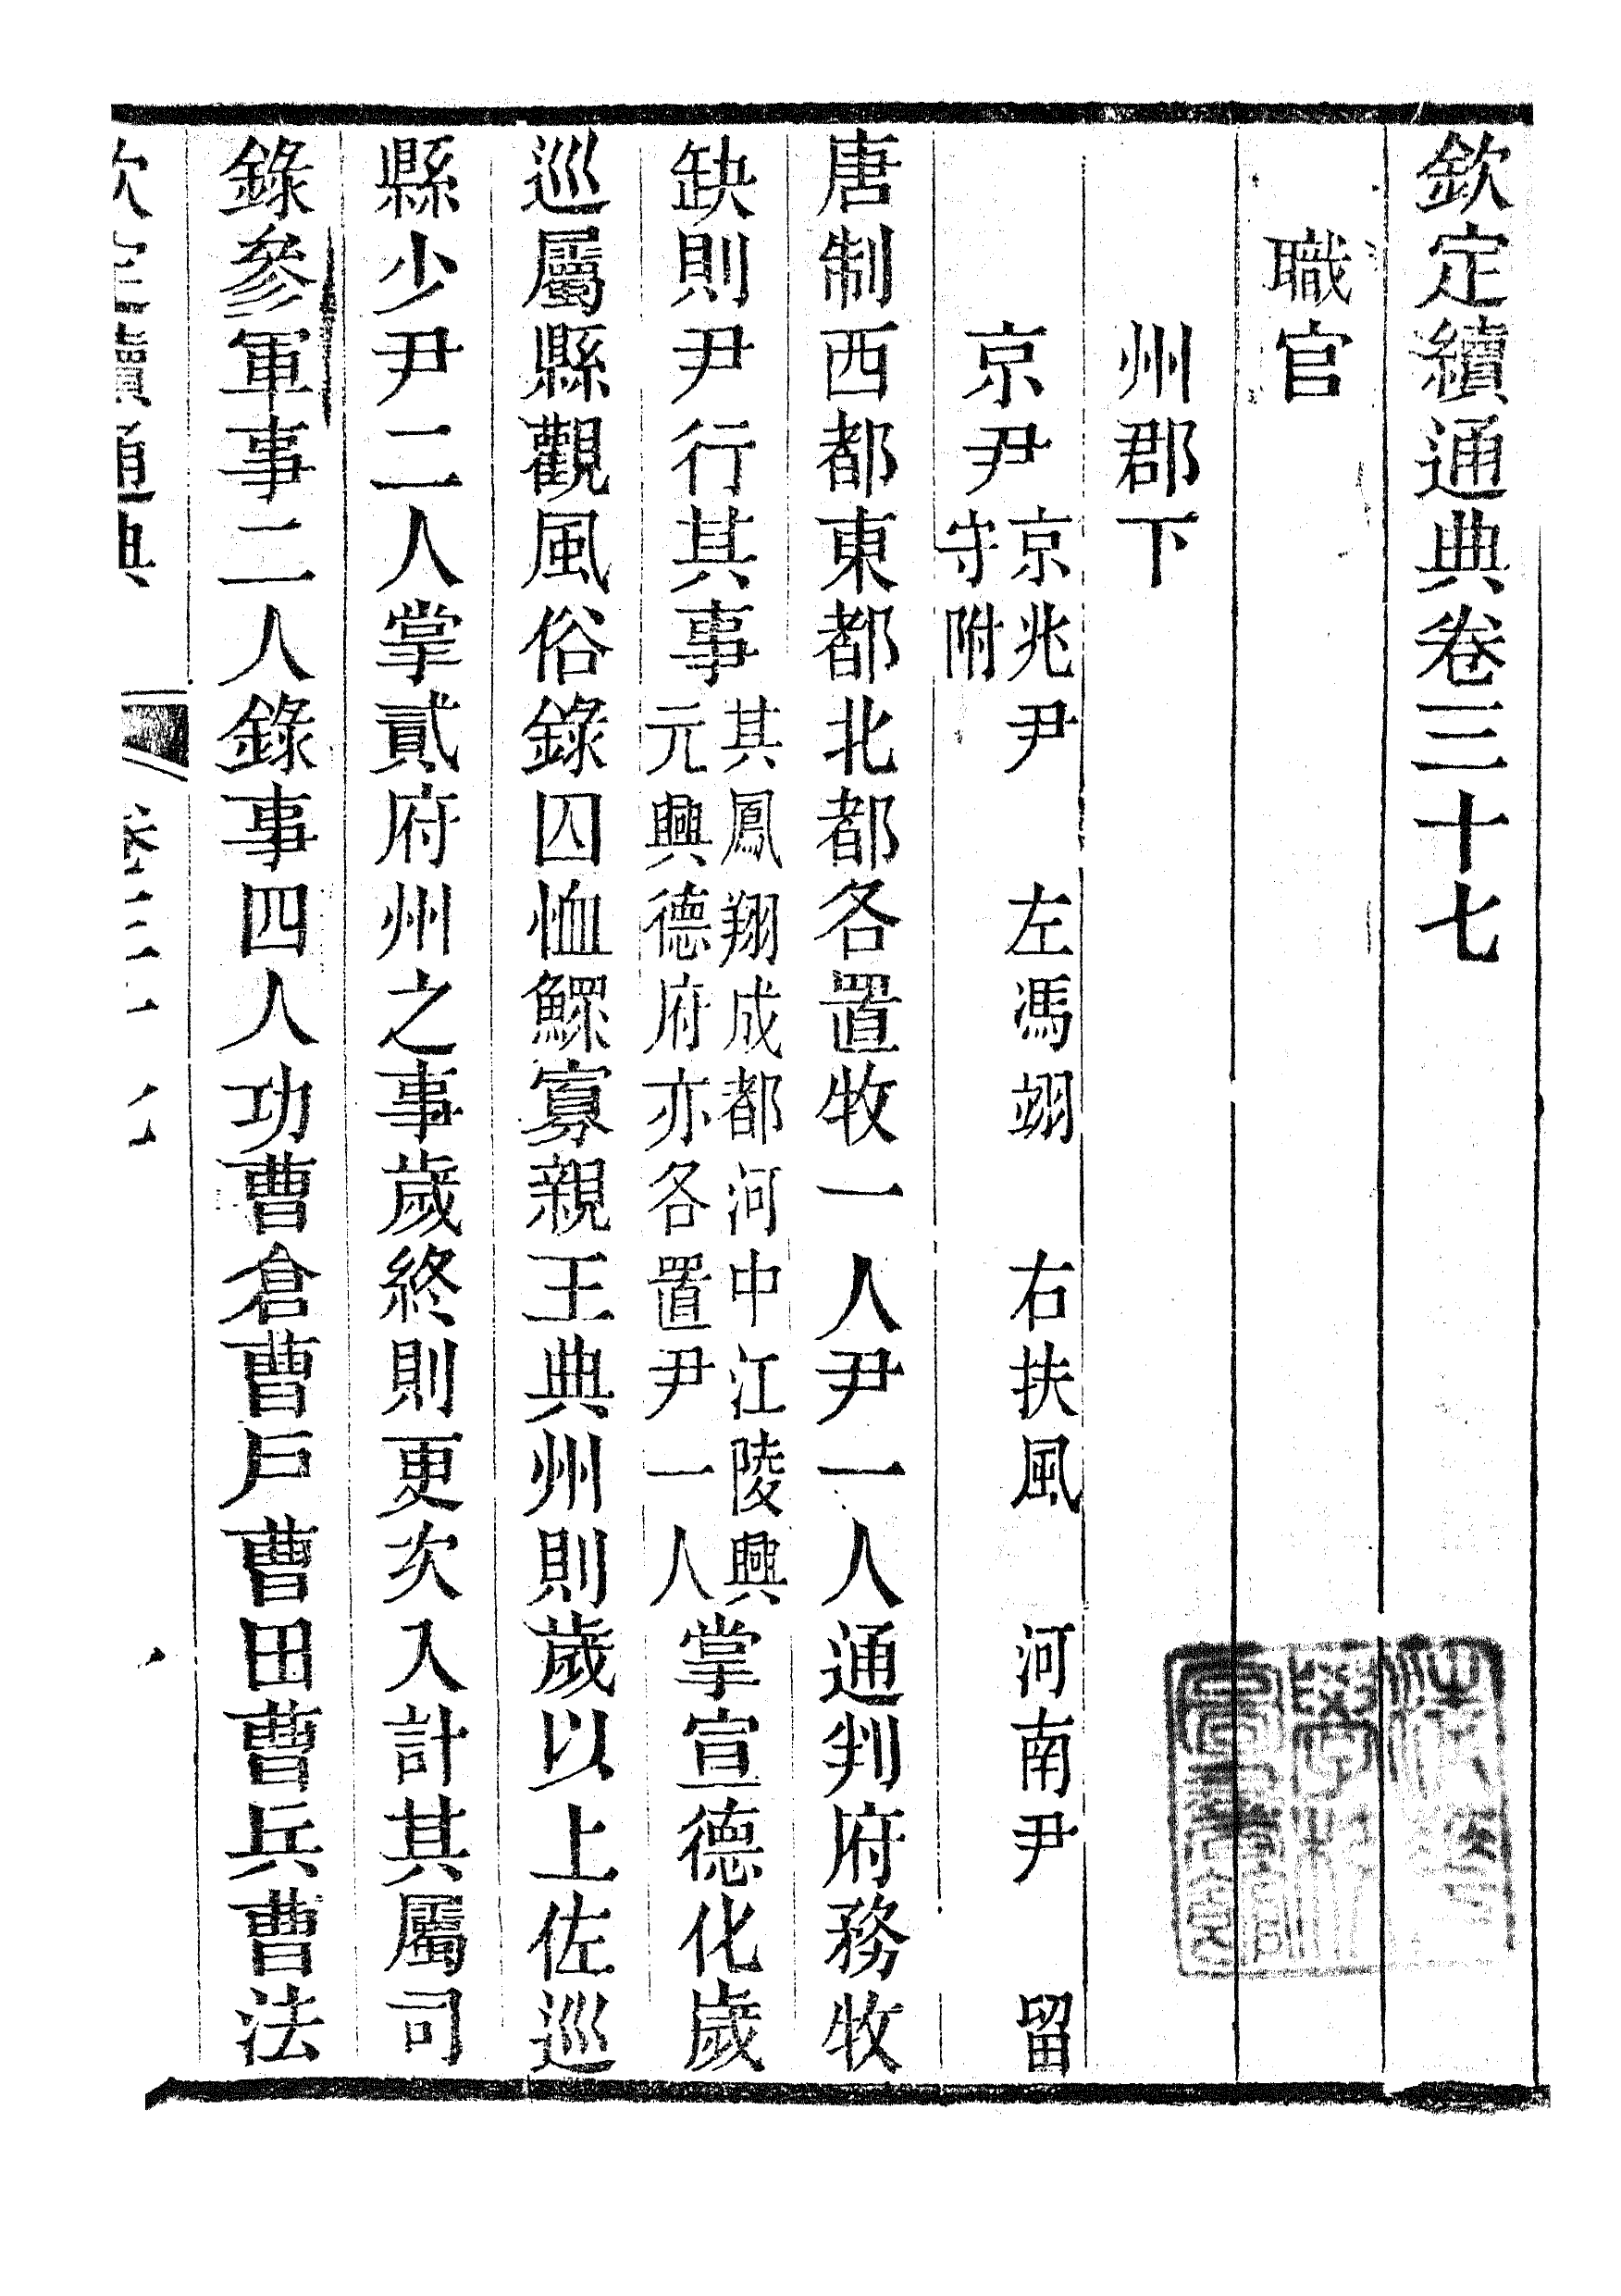 欽定續通典卷三十七
職官
州郡下
京尹 京兆尹 左馮翊 右扶風 河南尹 留守附
唐制西都東都北都各置牧一人尹一人通判府務牧
缺則尹行其事其鳳翔成都河中江陵興元興德府亦各置尹一人掌宣德化歲
巡屬縣觀風俗錄囚恤鰥寡親王典州則歲以上佐巡
縣少尹二人掌貳府州之事歲終則更次入計其屬司
錄參軍事二人錄事四人功曹倉曹戶曹田曹兵曹法
欽定續通典 卷三十七